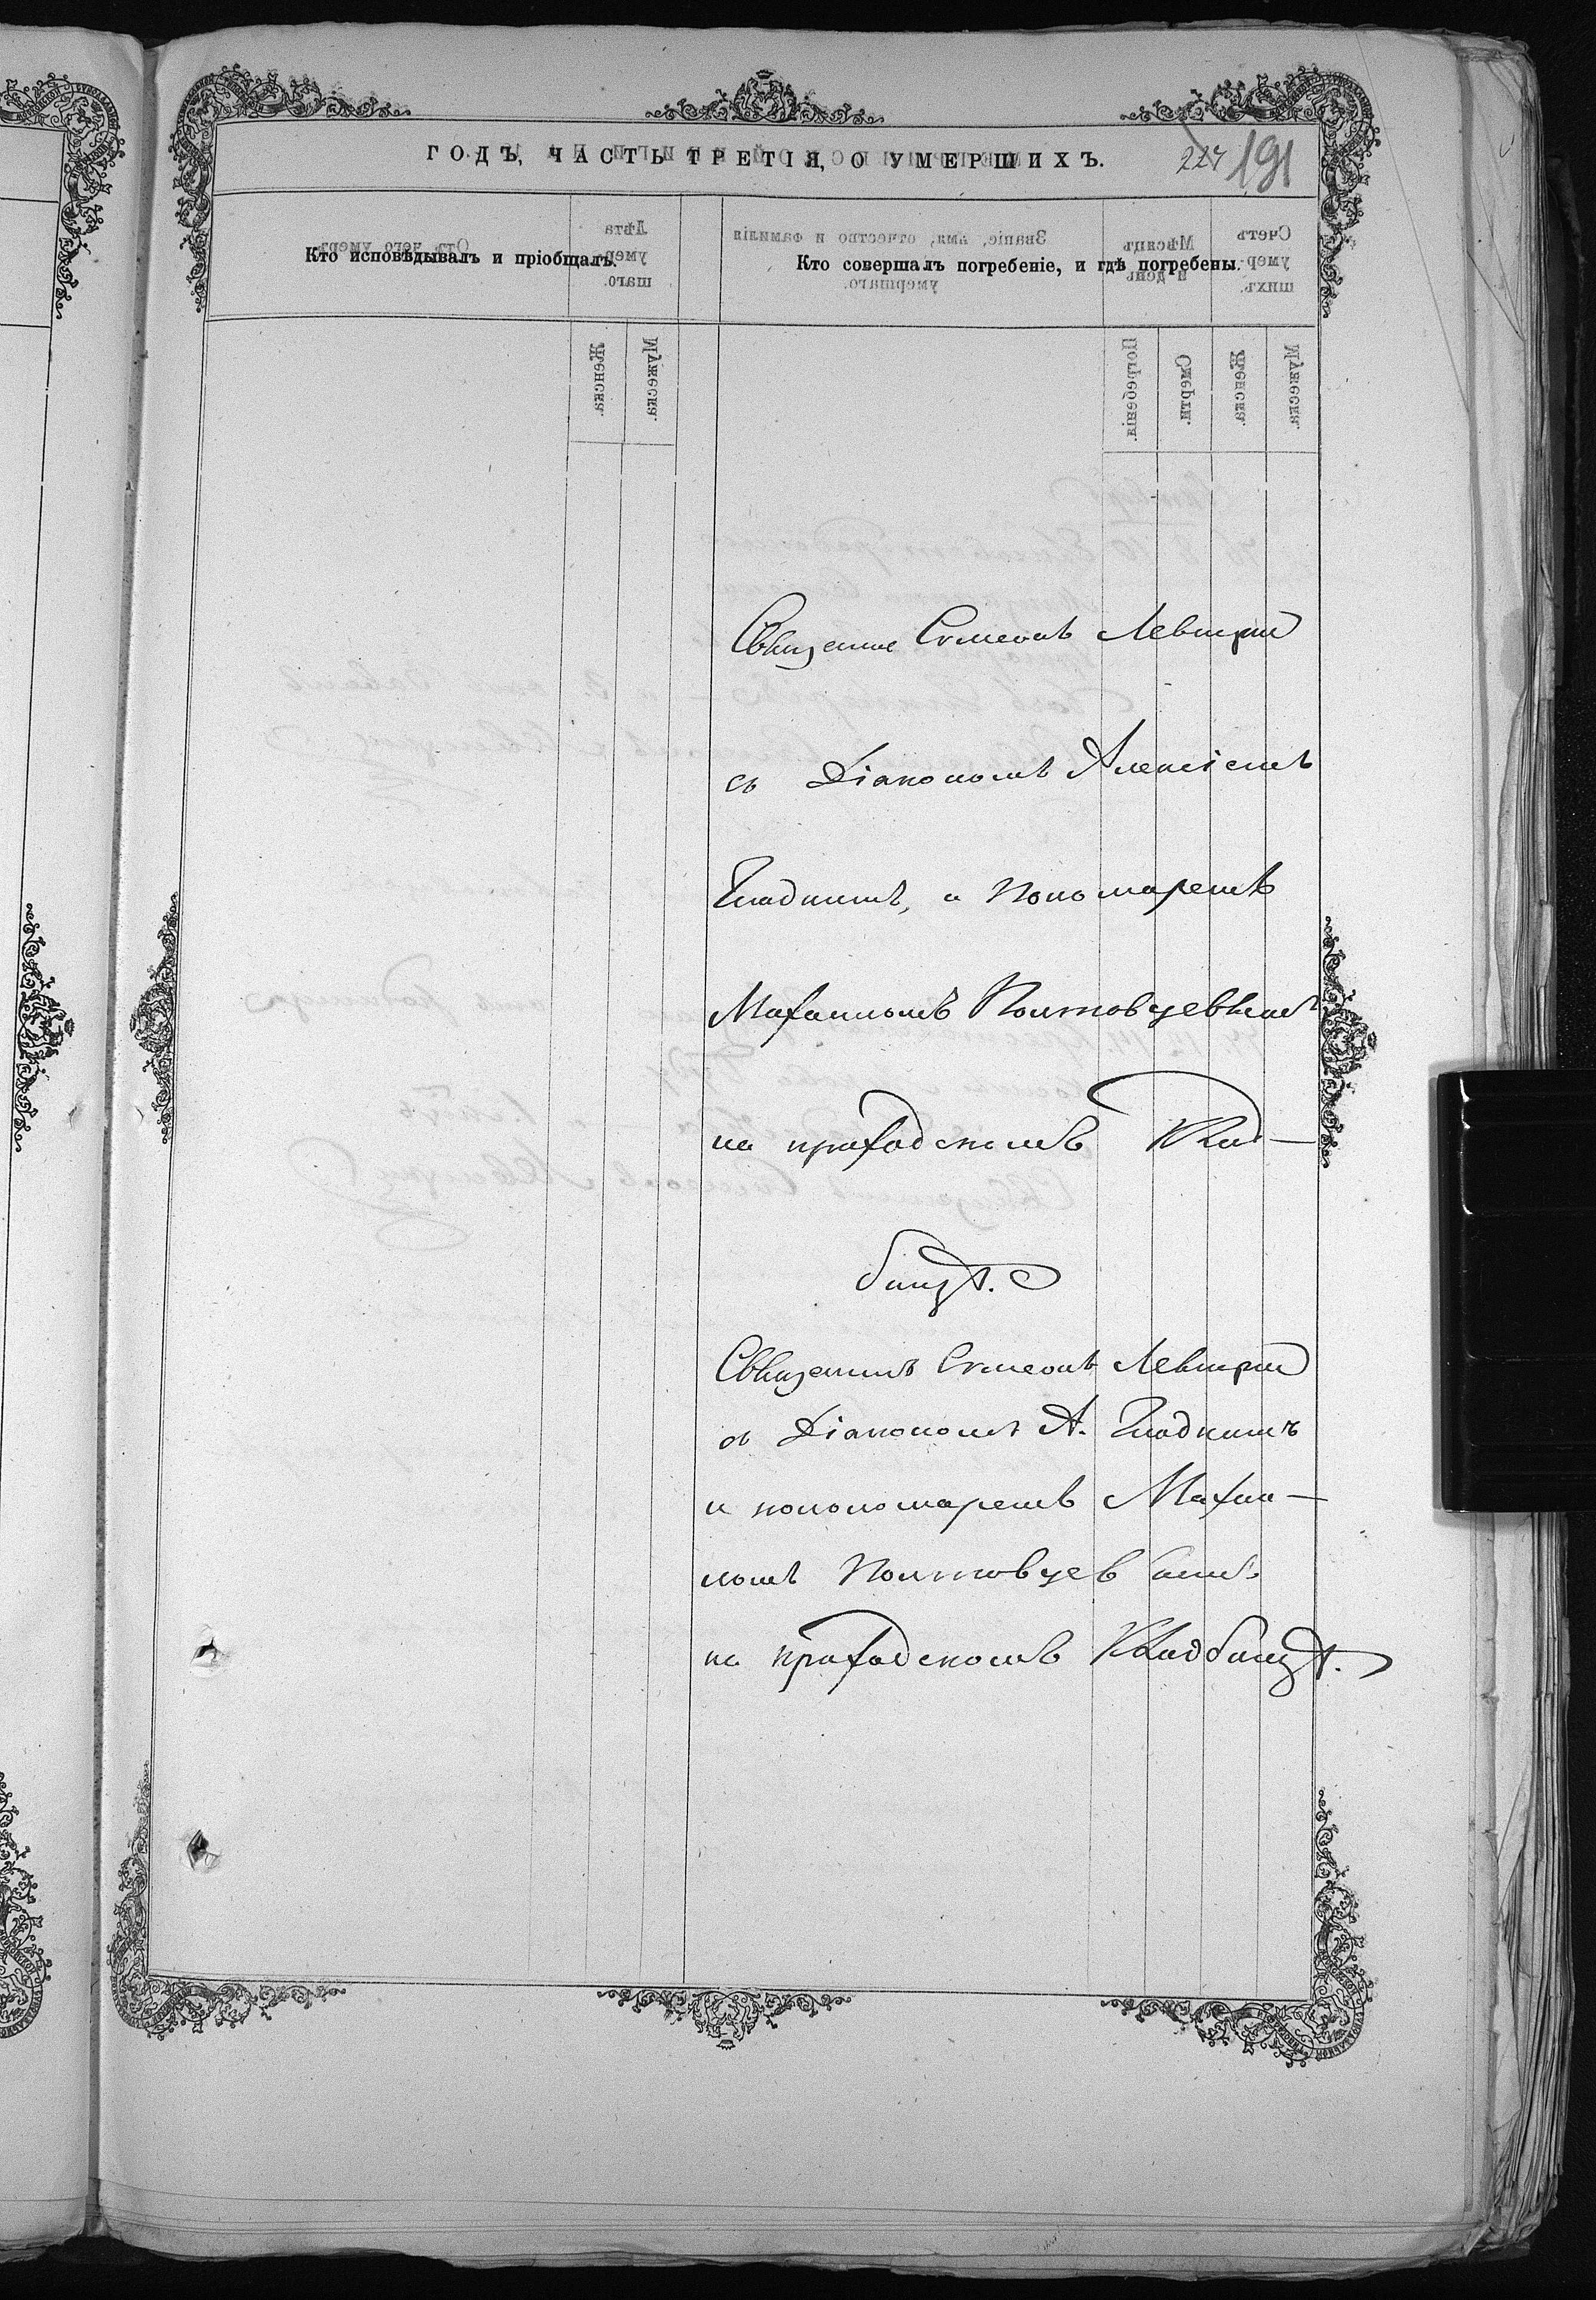 ГОДЪ, ЧАСТЬ ТРЕТІЯ, О УМЕРШИХЪ.
227 191
Кто исповѣдывалъ и пріобщалъ.
Кто совершалъ погребеніе, и гдѣ погребены.
Симеонъ Левицкій
съ Діакономъ Алексіемъ
Гладкимъ, и Пономаремъ
на приходскомъ Клад-
бищѣ.
Священникъ Симеонъ Левицкій
съ Діакономъ А. Гладкимъ
и пономаремъ
на приходскомъ Кладбищѣ.